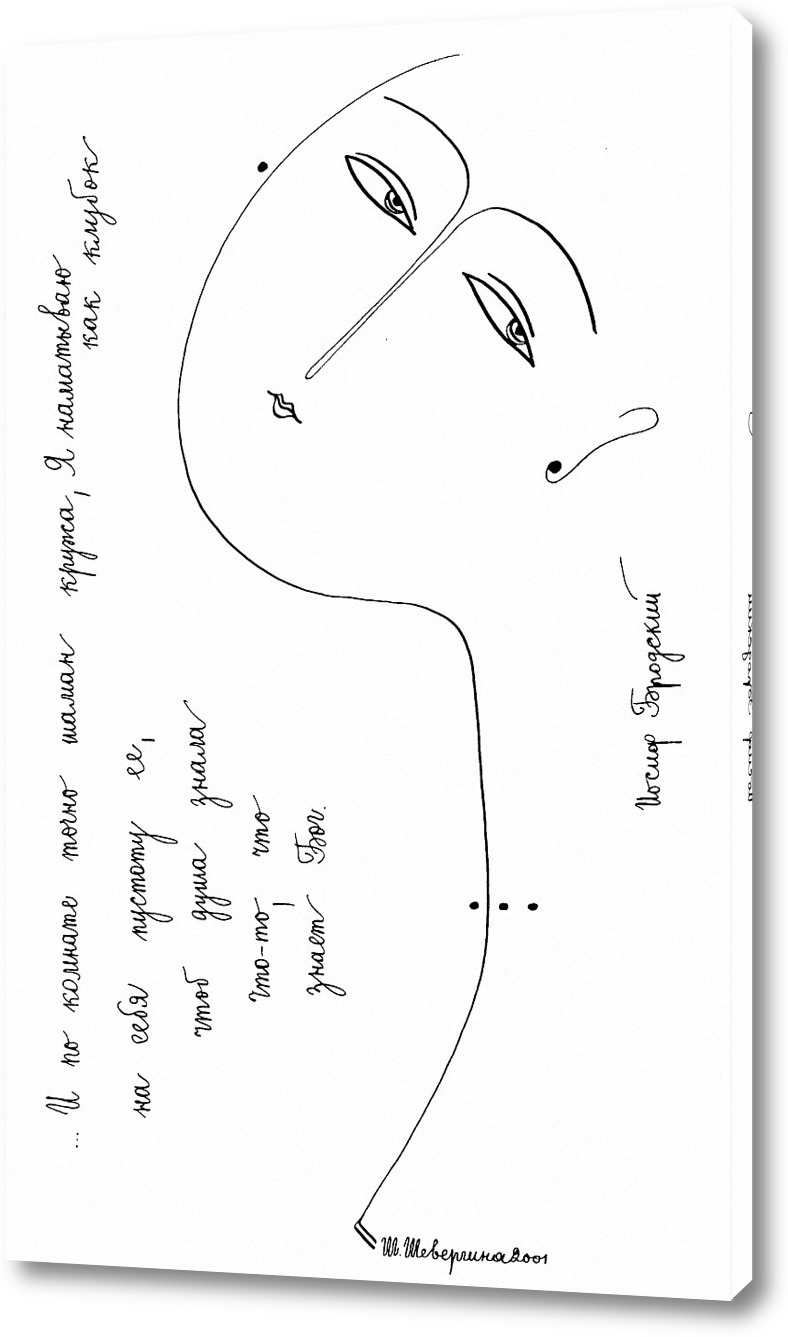 ... И по комнате точно шаман кружа, Я наматываю
как клубок
на себя пустоту ее,
чтоб душа знала
что-то, что
знает Бог.
Иосиф Бродский
Ш. Шевергина 2001